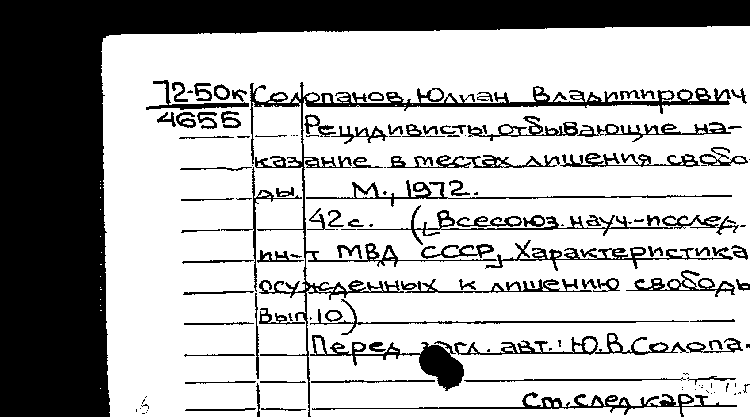 72-50к Солопанов, Юлиан Владимирович
4655 Рецидивисты, отбывающие на-
казание в местах лишения свобо
ды. М., 1972.
42 с. ([Всесоюз. науч-исслед.
ин-т МВД СССР], Характеристика
осужденных к лишению свободы
Вып. 10)
Перед загл. авт.: Ю.В. Солопа-
См. след карт.